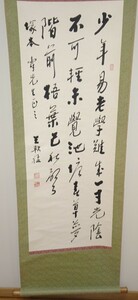 少年易老學難成一寸光陰
不可軽未覺池塘春草夢
階前梧葉已秋聲